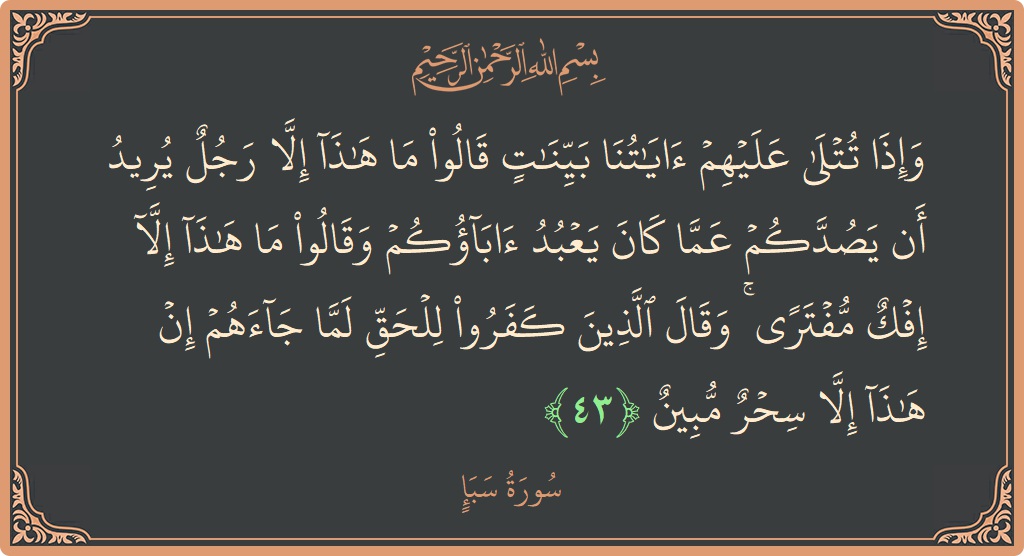 بِسْمِ ٱللَّهِ ٱلرَّحْمَٰنِ ٱلرَّحِيمِ
وَإِذَا تُتْلَىٰ عَلَيْهِمْ ءَايَٰتُنَا بَيِّنَٰتٍ قَالُوا۟ مَا هَٰذَآ إِلَّا رَجُلٌ يُرِيدُ
أَن يَصُدَّكُمْ عَمَّا كَانَ يَعْبُدُ ءَابَآؤُكُمْ وَقَالُوا۟ مَا هَٰذَآ إِلَّآ
إِفْكٌ مُّفْتَرًى ۚ وَقَالَ ٱلَّذِينَ كَفَرُوا۟ لِلْحَقِّ لَمَّا جَآءَهُمْ إِنْ
هَٰذَآ إِلَّا سِحْرٌ مُّبِينٌ ﴿٤٣﴾
سُورَةُ سَبَإٍ